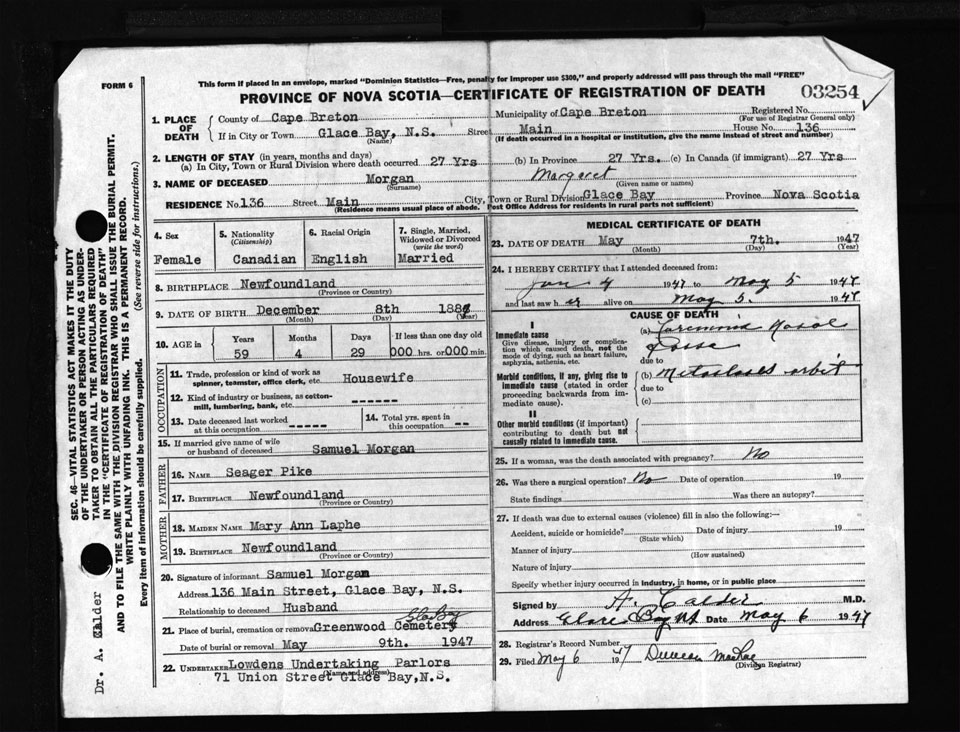 This form if placed in an envelope, marked "Dominion Statistics—Free, penalty for improper use $300," and properly addressed will pass through the mail "FREE"
FORM 6
PROVINCE OF NOVA SCOTIA—CERTIFICATE OF REGISTRATION OF DEATH 03254
1. PLACE OF DEATH County of Cape Breton Municipality of Cape Breton Registered No.
(For use of Registrar General only)
If in City or Town Glace Bay, N.S. Street Main House No. 136
(Name) (If death occurred in a hospital or institution, give the name instead of street and number)
2. LENGTH OF STAY (in years, months and days)
(a) In City, Town or Rural Division where death occurred 27 Yrs (b) In Province 27 Yrs. (c) In Canada (if immigrant) 27 Yrs
3. NAME OF DECEASED Morgan Margaret
(Surname) (Given name or names)
RESIDENCE No. 136 Street Main City, Town or Rural Division Glace Bay Province Nova Scotia
(Residence means usual place of abode. Post Office Address for residents in rural parts not sufficient)
4. Sex
Female
5. Nationality
(Citizenship)
Canadian
6. Racial Origin
English
7. Single, Married, Widowed or Divorced
(write the word)
Married
8. BIRTHPLACE Newfoundland
(Province or Country)
9. DATE OF BIRTH December 8th 188
(Month) (Day) (Year)
10. AGE in Years Months Days If less than one day old
59 4 29 000 hrs. or 000 min.
OCCUPATION
11. Trade, profession or kind of work as spinner, teamster, office clerk, etc. Housewife
12. Kind of industry or business, as cotton-mill, lumbering, bank, etc. ------
13. Date deceased last worked at this occupation -----
14. Total yrs. spent in this occupation --
15. If married give name of wife or husband of deceased Samuel Morgan
FATHER
16. NAME Seager Pike
17. BIRTHPLACE Newfoundland
(Province or Country)
MOTHER
18. MAIDEN NAME Mary Ann Laphe
19. BIRTHPLACE Newfoundland
(Province or Country)
20. Signature of informant Samuel Morgan
Address 136 Main Street, Glace Bay, N.S.
Relationship to deceased Husband
21. Place of burial, cremation or removal Greenwood Cemetery Glace Bay
Date of burial or removal May 9th. 1947
22. UNDERTAKER Lowdens Undertaking Parlors
(Name and address)
71 Union Street Glace Bay, N.S.
MEDICAL CERTIFICATE OF DEATH
23. DATE OF DEATH May 7th. 1947
(Month) (Day) (Year)
24. I HEREBY CERTIFY that I attended deceased from:
Jan 4 1947 to May 5 1947
and last saw her alive on May 5. 1947
CAUSE OF DEATH
I
Immediate cause
Give disease, injury or complication which caused death, not the mode of dying, such as heart failure, asphyxia, asthenia, etc.
(a) Nasal
due to
Morbid conditions, if any, giving rise to immediate cause (stated in order proceeding backwards from immediate cause).
(b) Metastases orbit
due to
(c)
II
Other morbid conditions (if important) contributing to death but not causally related to immediate cause.
25. If a woman, was the death associated with pregnancy? No
26. Was there a surgical operation? No Date of operation 19
State findings Was there an autopsy?
27. If death was due to external causes (violence) fill in also the following:—
Accident, suicide or homicide? Date of injury 19
(State which)
Manner of injury
(How sustained)
Nature of injury
Specify whether injury occurred in industry, in home, or in public place
Signed by A. Calder M.D.
Address Glace Bay NS Date May 6 1947
28. Registrar's Record Number
29. Filed May 6 1947 Duncan MacRae
(Division Registrar)
SEC. 46—VITAL STATISTICS ACT MAKES IT THE DUTY
OF THE UNDERTAKER OR PERSON ACTING AS UNDERTAKER TO OBTAIN ALL THE PARTICULARS REQUIRED
IN THE "CERTIFICATE OF REGISTRATION OF DEATH"
AND TO FILE THE SAME WITH THE DIVISION REGISTRAR WHO SHALL ISSUE THE BURIAL PERMIT.
WRITE PLAINLY WITH UNFADING INK. THIS IS A PERMANENT RECORD.
Every item of information should be carefully supplied. (See reverse side for instructions.)
Dr. A. Calder